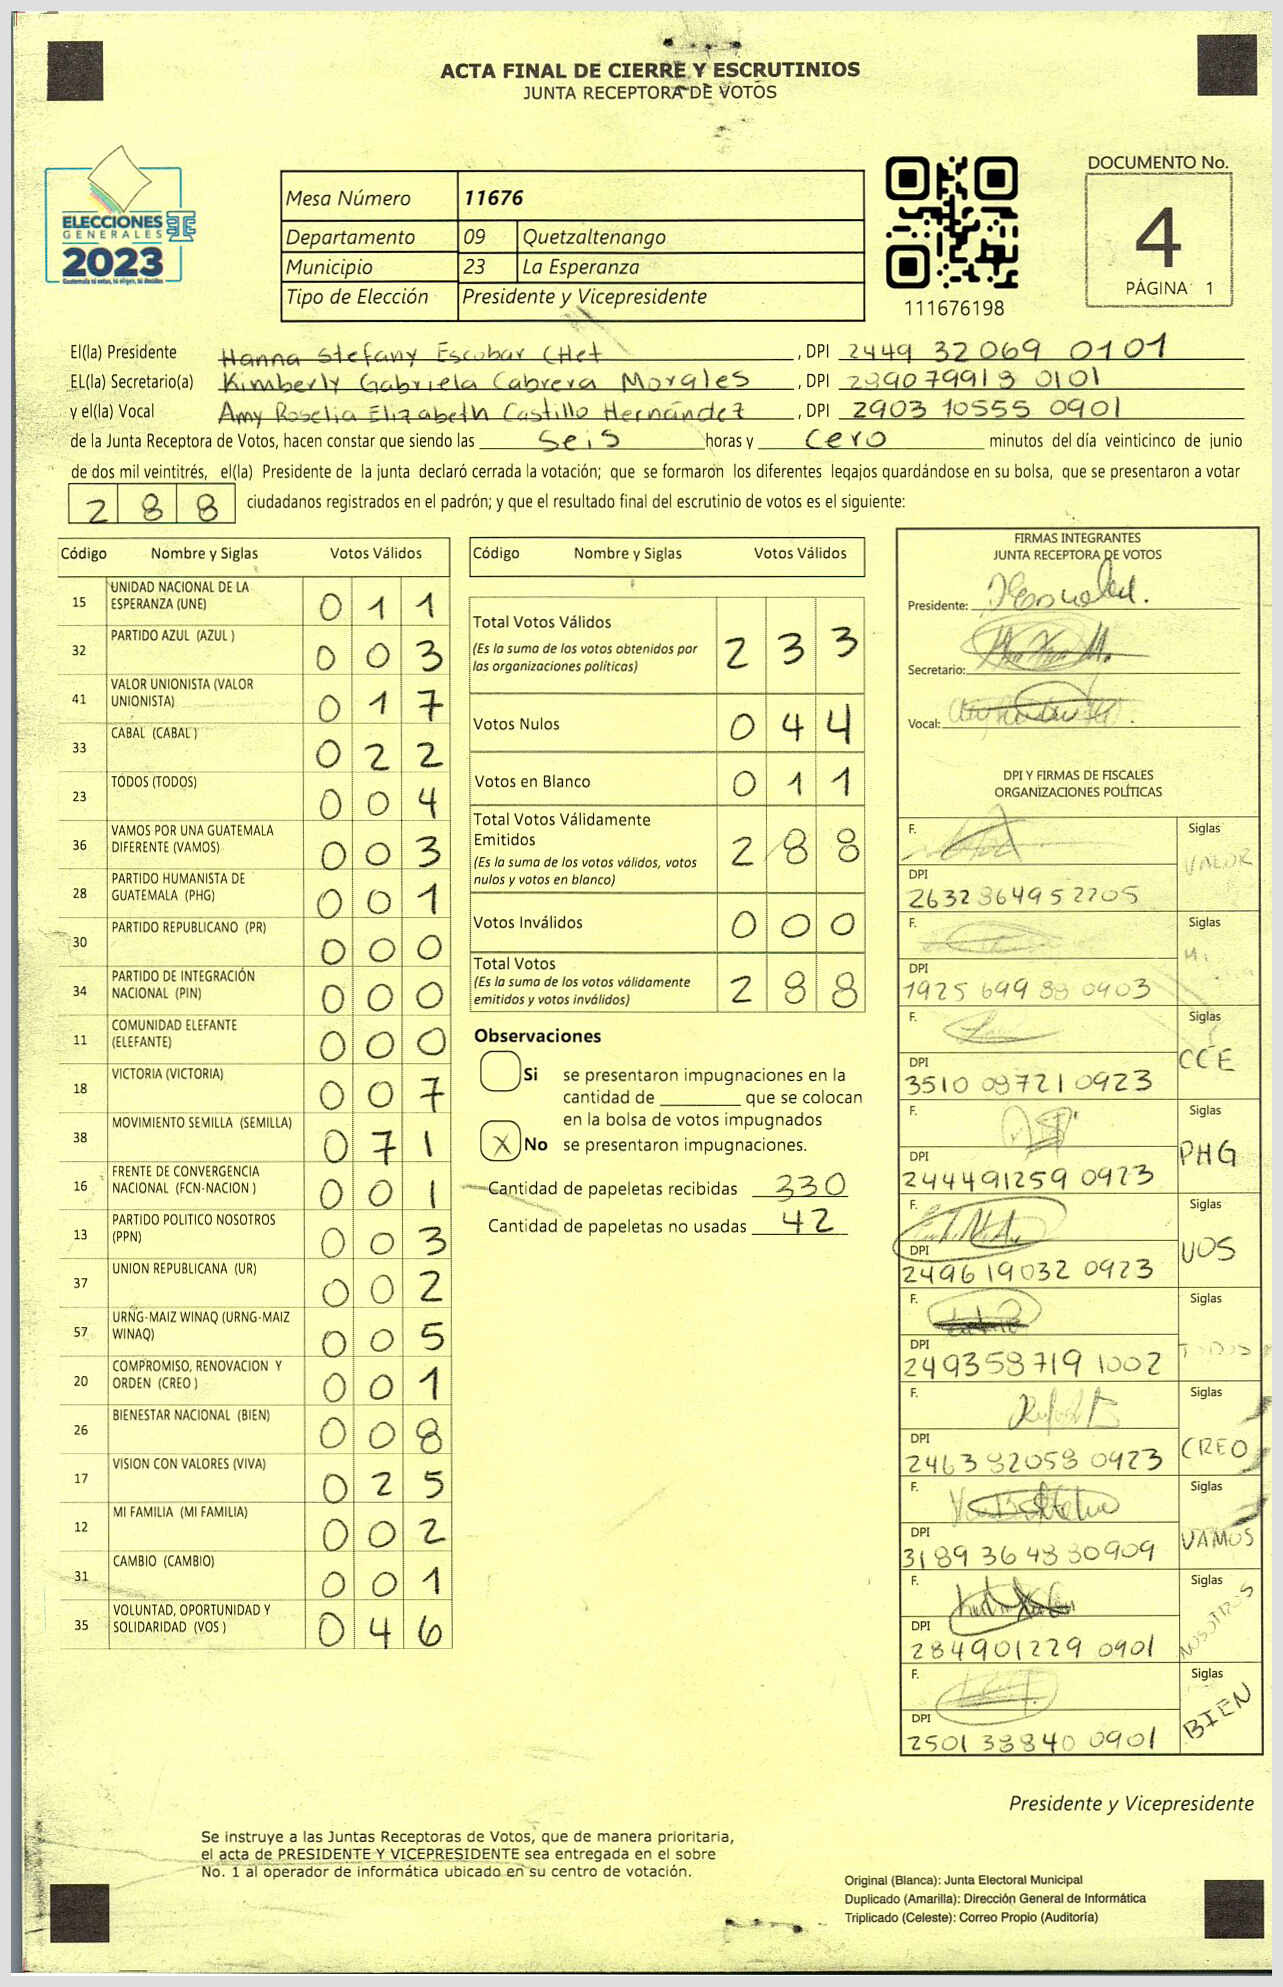 ACTA FINAL DE CIERRE Y ESCRUTINIOS
JUNTA RECEPTORA DE VOTOS
ELECCIONES
GENERALES
2023
Guatemala tú votas, tú eliges, tú decides
Mesa Número 11676
Departamento 09 Quetzaltenango
Municipio 23 La Esperanza
Tipo de Elección Presidente y Vicepresidente
111676198
DOCUMENTO No.
4
PÁGINA 1
El(la) Presidente Hanna Stefany Escobar CHet, DPI 2449 32069 0101
EL(la) Secretario(a) Kimberly Gabriela Cabrera Morales, DPI 289079913 0101
y el(la) Vocal Amy Roselia Elizabeth Castillo Hernández, DPI 2903 10555 0901
de la Junta Receptora de Votos, hacen constar que siendo las seis horas y cero minutos del día veinticinco de junio
de dos mil veintitrés, el(la) Presidente de la junta declaró cerrada la votación; que se formaron los diferentes legajos guardándose en su bolsa, que se presentaron a votar
288 ciudadanos registrados en el padrón; y que el resultado final del escrutinio de votos es el siguiente:
Código Nombre y Siglas Votos Válidos
15 UNIDAD NACIONAL DE LA ESPERANZA (UNE) 011
32 PARTIDO AZUL (AZUL ) 003
41 VALOR UNIONISTA (VALOR UNIONISTA) 017
33 CABAL (CABAL ) 022
23 TODOS (TODOS) 004
36 VAMOS POR UNA GUATEMALA DIFERENTE (VAMOS) 003
28 PARTIDO HUMANISTA DE GUATEMALA (PHG) 001
30 PARTIDO REPUBLICANO (PR) 000
34 PARTIDO DE INTEGRACIÓN NACIONAL (PIN) 000
11 COMUNIDAD ELEFANTE (ELEFANTE) 000
18 VICTORIA (VICTORIA) 007
38 MOVIMIENTO SEMILLA (SEMILLA) 071
16 FRENTE DE CONVERGENCIA NACIONAL (FCN-NACION ) 001
13 PARTIDO POLITICO NOSOTROS (PPN) 003
37 UNION REPUBLICANA (UR) 002
57 URNG-MAIZ WINAQ (URNG-MAIZ WINAQ) 005
20 COMPROMISO, RENOVACION Y ORDEN (CREO ) 001
26 BIENESTAR NACIONAL (BIEN) 008
17 VISION CON VALORES (VIVA) 025
12 MI FAMILIA (MI FAMILIA) 002
31 CAMBIO (CAMBIO) 001
35 VOLUNTAD, OPORTUNIDAD Y SOLIDARIDAD (VOS ) 046
Código Nombre y Siglas Votos Válidos
Total Votos Válidos 233
(Es la suma de los votos obtenidos por
las organizaciones políticas)
Votos Nulos 044
Votos en Blanco 011
Total Votos Válidamente
Emitidos 288
(Es la suma de los votos válidos, votos
nulos y votos en blanco)
Votos Inválidos 000
Total Votos 288
(Es la suma de los votos válidamente
emitidos y votos inválidos)
Observaciones
Si se presentaron impugnaciones en la
cantidad de ________ que se colocan
en la bolsa de votos impugnados
X No se presentaron impugnaciones.
Cantidad de papeletas recibidas 330
Cantidad de papeletas no usadas 42
FIRMAS INTEGRANTES
JUNTA RECEPTORA DE VOTOS
Presidente:
Secretario:
Vocal:
DPI Y FIRMAS DE FISCALES
ORGANIZACIONES POLÍTICAS
F. Siglas VALOR
DPI
2632 864952205
F. Siglas
DPI
1925 699 88 0903
F. Siglas CCE
DPI
3510 08721 0923
F. Siglas PHG
DPI
244491259 0923
F. Siglas VOS
DPI
249619032 0923
F. Siglas TODOS
DPI
249358719 1002
F. Siglas CREO
DPI
246382058 0923
F. Siglas VAMOS
DPI
3189 364880909
F. Siglas NOSOTROS
DPI
284901229 0901
F. Siglas BIEN
DPI
2501 38840 0901
Presidente y Vicepresidente
Se instruye a las Juntas Receptoras de Votos, que de manera prioritaria,
el acta de PRESIDENTE Y VICEPRESIDENTE sea entregada en el sobre
No. 1 al operador de informática ubicado en su centro de votación.
Original (Blanca): Junta Electoral Municipal
Duplicado (Amarilla): Dirección General de Informática
Triplicado (Celeste): Correo Propio (Auditoría)